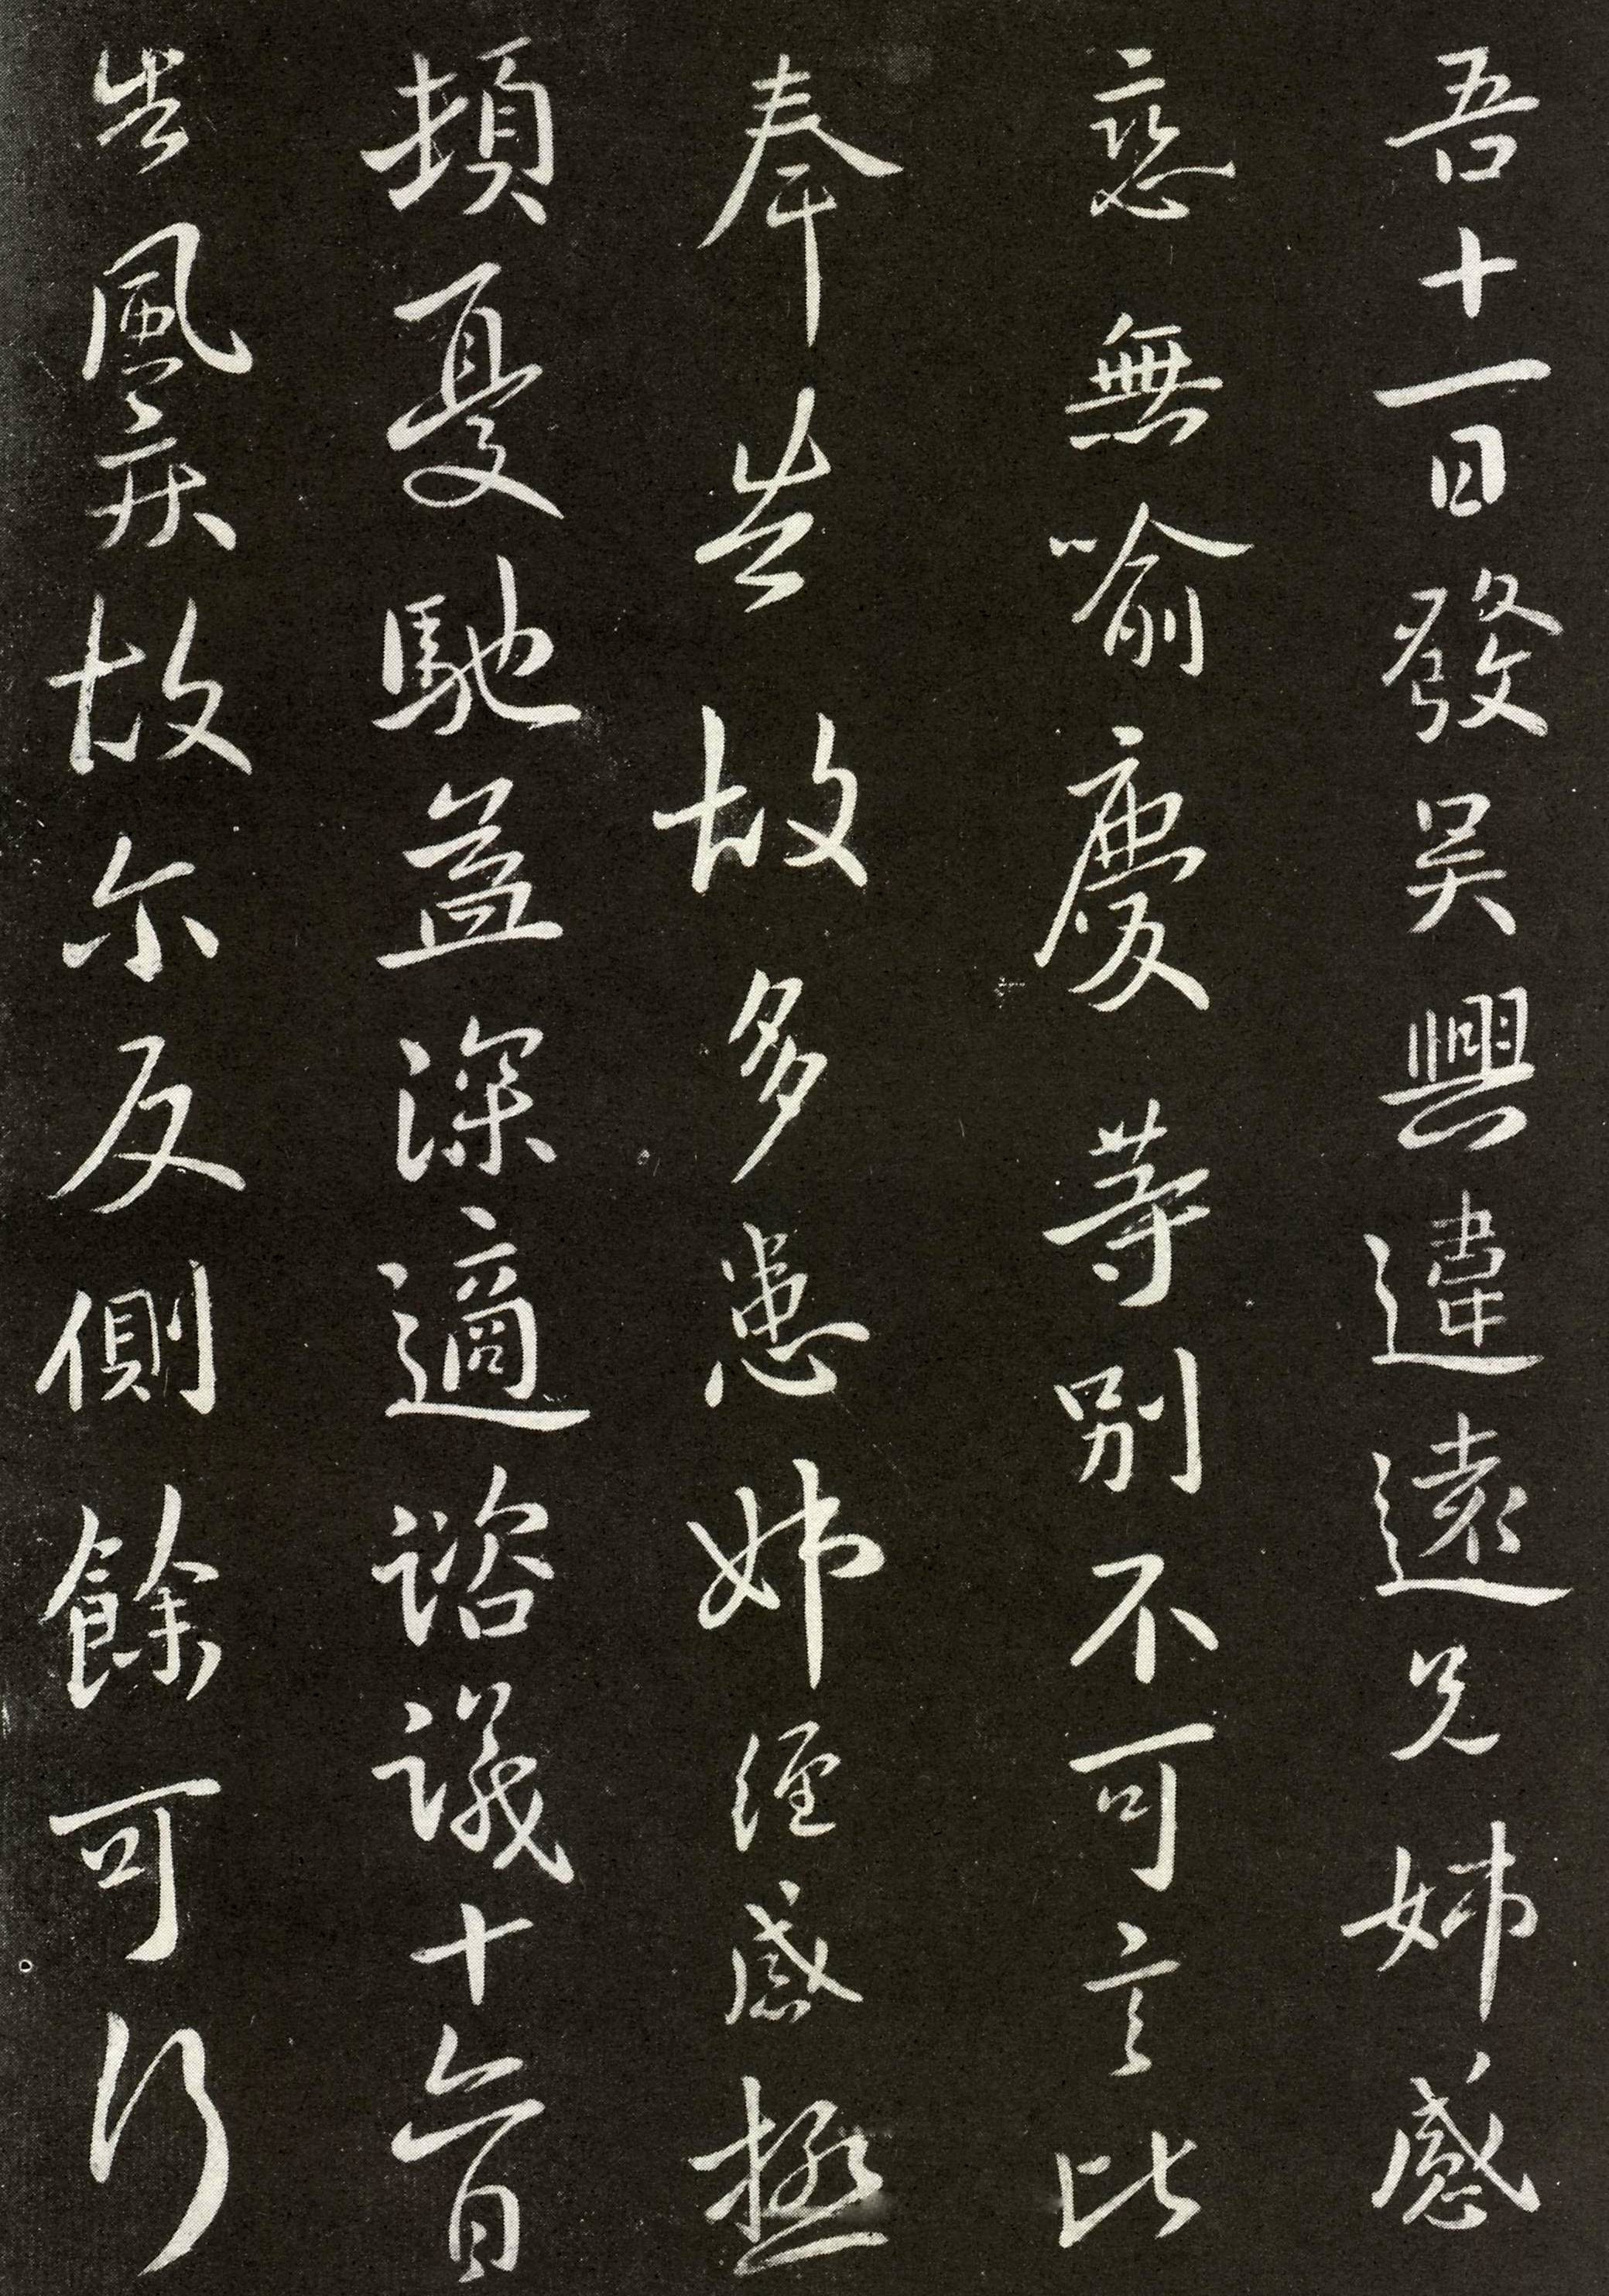 吾十一日發吴興違遠兄姊感
戀無喻慶等別不可言比
奉告故多患姊經感極
頓憂馳益深適諮議十六日
告風疾故尔反側餘可行